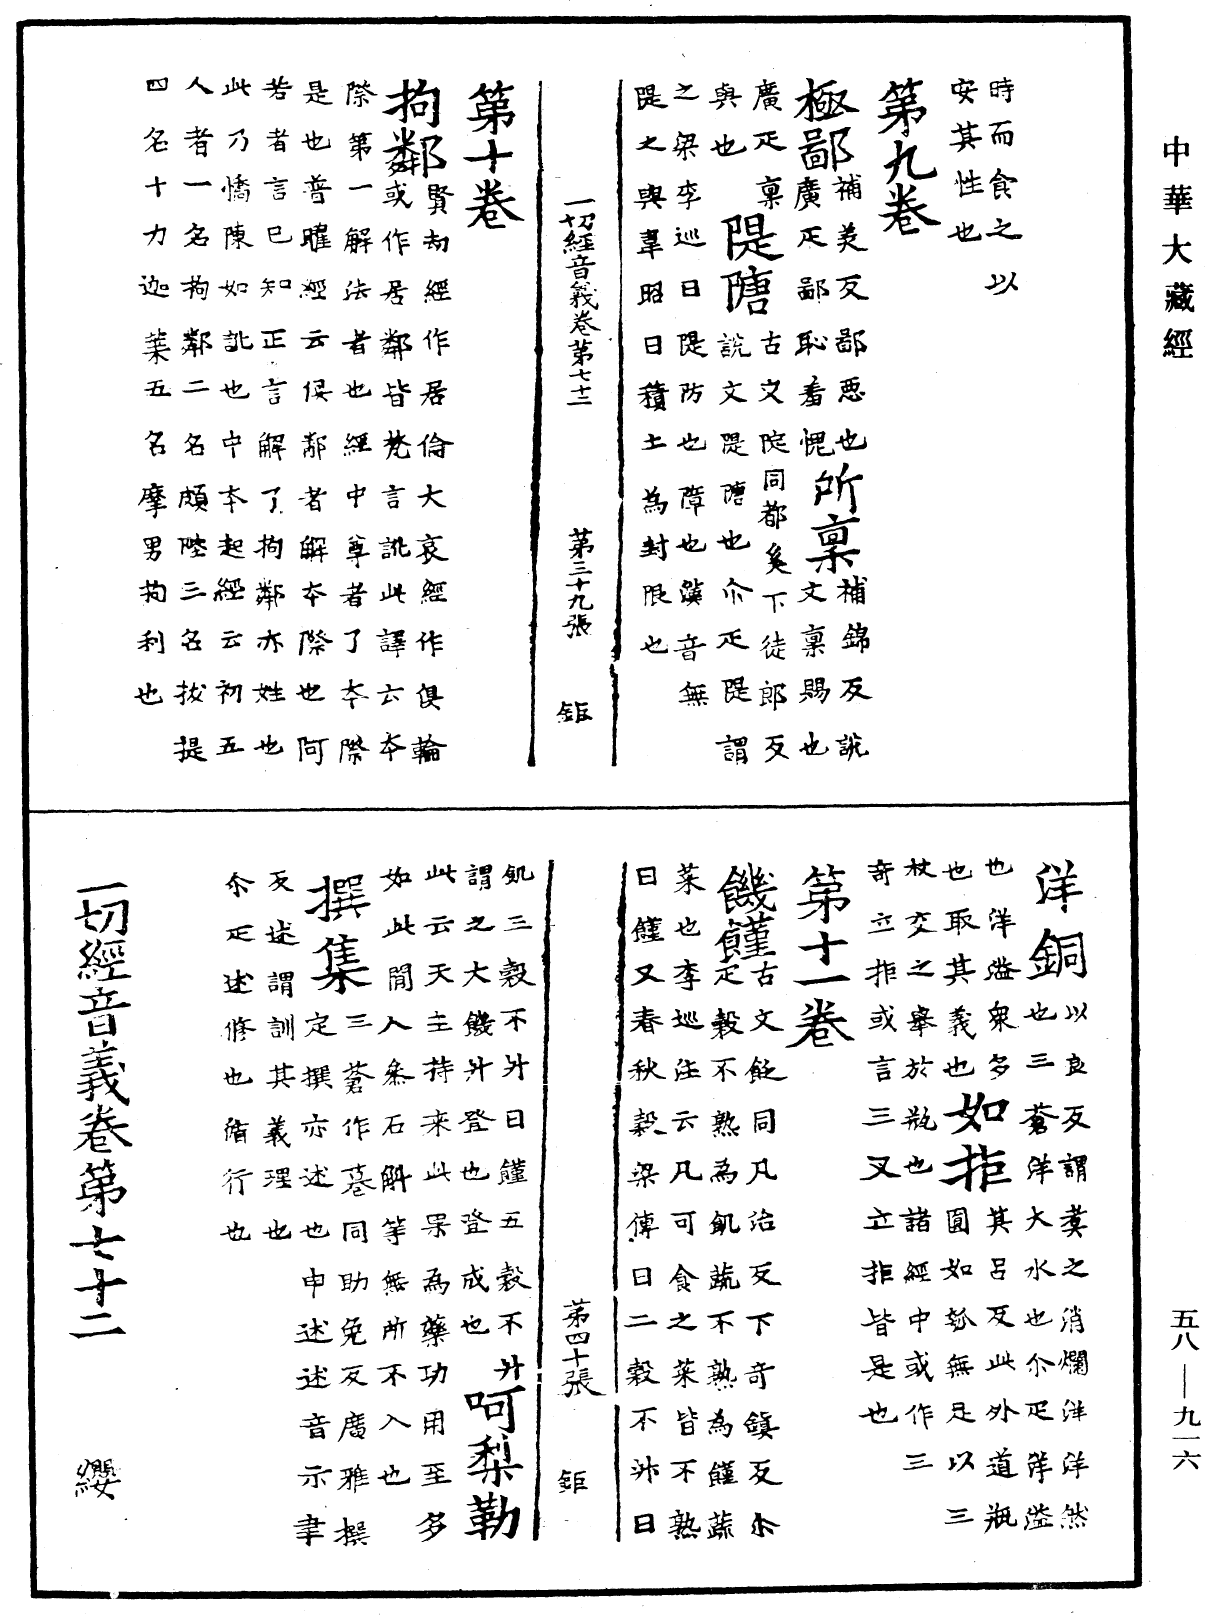 中華大藏經
時而食之以
安其性也
第九卷
極鄙補美反鄙惡也
廣疋鄙恥羞愧也
所稟補錦反說
文稟賜也
廣疋稟
與也
隄隌古文院同都奚下徒郎反
說文隄隌也尒疋隄謂
之梁李巡曰隄防也障也漢音無
隄之輿韋昭曰積土為封限也
一切經音義卷第七十二 第三十九張 鉅
第十卷
拘鄰賢劫經作居倫大哀經作俱輪
或作居鄰皆梵言訛此譯云本
際第一解法者也經中尊者了本際
是也普曜經云俱鄰者解本際也阿
若者言已知正言解了拘鄰亦姓也
此乃憍陳如訛也中本起經云初五
人者一名拘鄰二名頗陛三名拔提
四名十力迦葉五名摩男拘利也
洋銅以良反謂煑之消爛洋洋然
也三蒼洋大水也尒疋洋溢
也洋溢衆多
也取其義也
如拒其呂反此外道瓶
圓如瓠無足以三
杖交之舉於瓶也諸經中或作三
奇立拒或言三叉立拒皆是也
第十一卷
饑饉古文飢同凡治反下奇鎮反尒
疋穀不熟為飢蔬不熟為饉蔬
菜也李巡注云凡可食之菜皆不熟
曰饉又春秋穀梁傳曰二穀不升曰
第四十張 鉅
飢三穀不升曰饉五穀不升
謂之大饑升登也登成也
呵梨勒
此云天主持来此果為藥功用至多
如此閒人參石斛等無所不入也
撰集三蒼作篹同助免反廣雅撰
定撰亦述也申述述音示聿
反述謂訓其義理也
尒疋述修也循行也
一切經音義卷第七十二 纓
五八—九一六